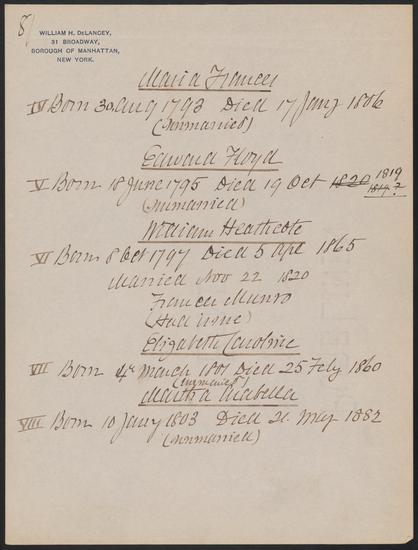 8
WILLIAM H. DELANCEY,
31 BROADWAY,
BOROUGH OF MANHATTAN,
NEW YORK.
Maria Frances
IV Born 30 Aug 1793 Died 17 Jany 1886
(Unmarried)
Edward Floyd
V Born 18 June 1795 Died 19 Oct 1820 1819
1819 ?
(Unmarried)
William Heathcote
VI Born 8 Oct 1797 Died 5 Apl 1865
Married Nov 22 1820
Frances Munro
(Had issue)
Elizabeth Caroline
VII Born 4 March 1801 Died 25 Feby 1860
(Unmarried)
Martha Arabella
VIII Born 10 Jany 1803 Died 21. May 1882
(Unmarried)